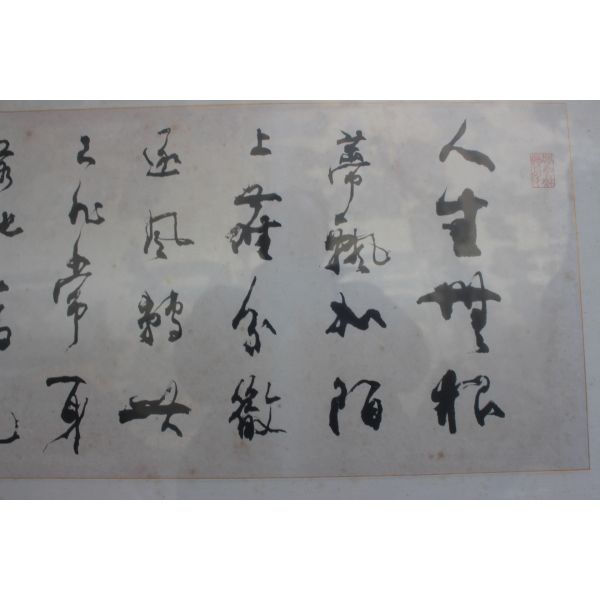 人生無根
蒂飄如陌
上塵分散
逐風轉此
已非常身
落地